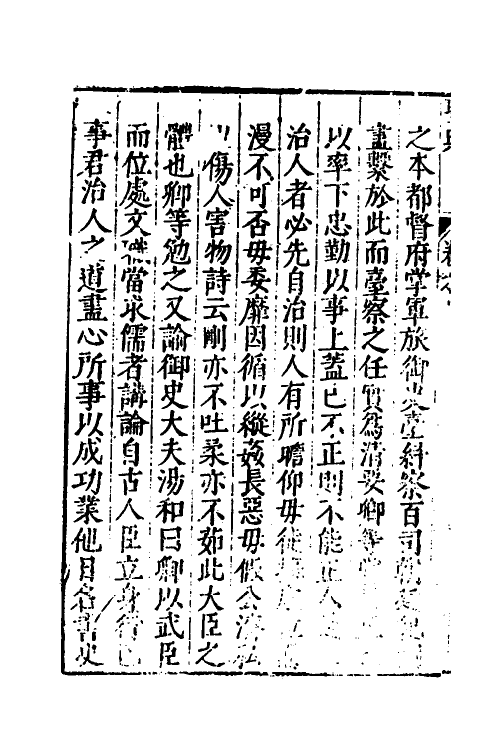 之本都督府掌軍旅御史臺糾察百司朝廷紀
盡繫於此而臺察之任實爲清要卿等當
以率下忠勤以事上蓋已不正則不能正人
治人者必先自治則人有所瞻仰毋徒
漫不可否毋委靡因循以縱姦長惡毋假公濟私
以傷人害物詩云剛亦不吐柔亦不茹此大臣之
體也卿等勉之又諭御史大夫湯和曰卿以武臣
而位處文職當求儒者講論自古人臣立身行已
事君治人之道盡心所事以成功業他日名書史